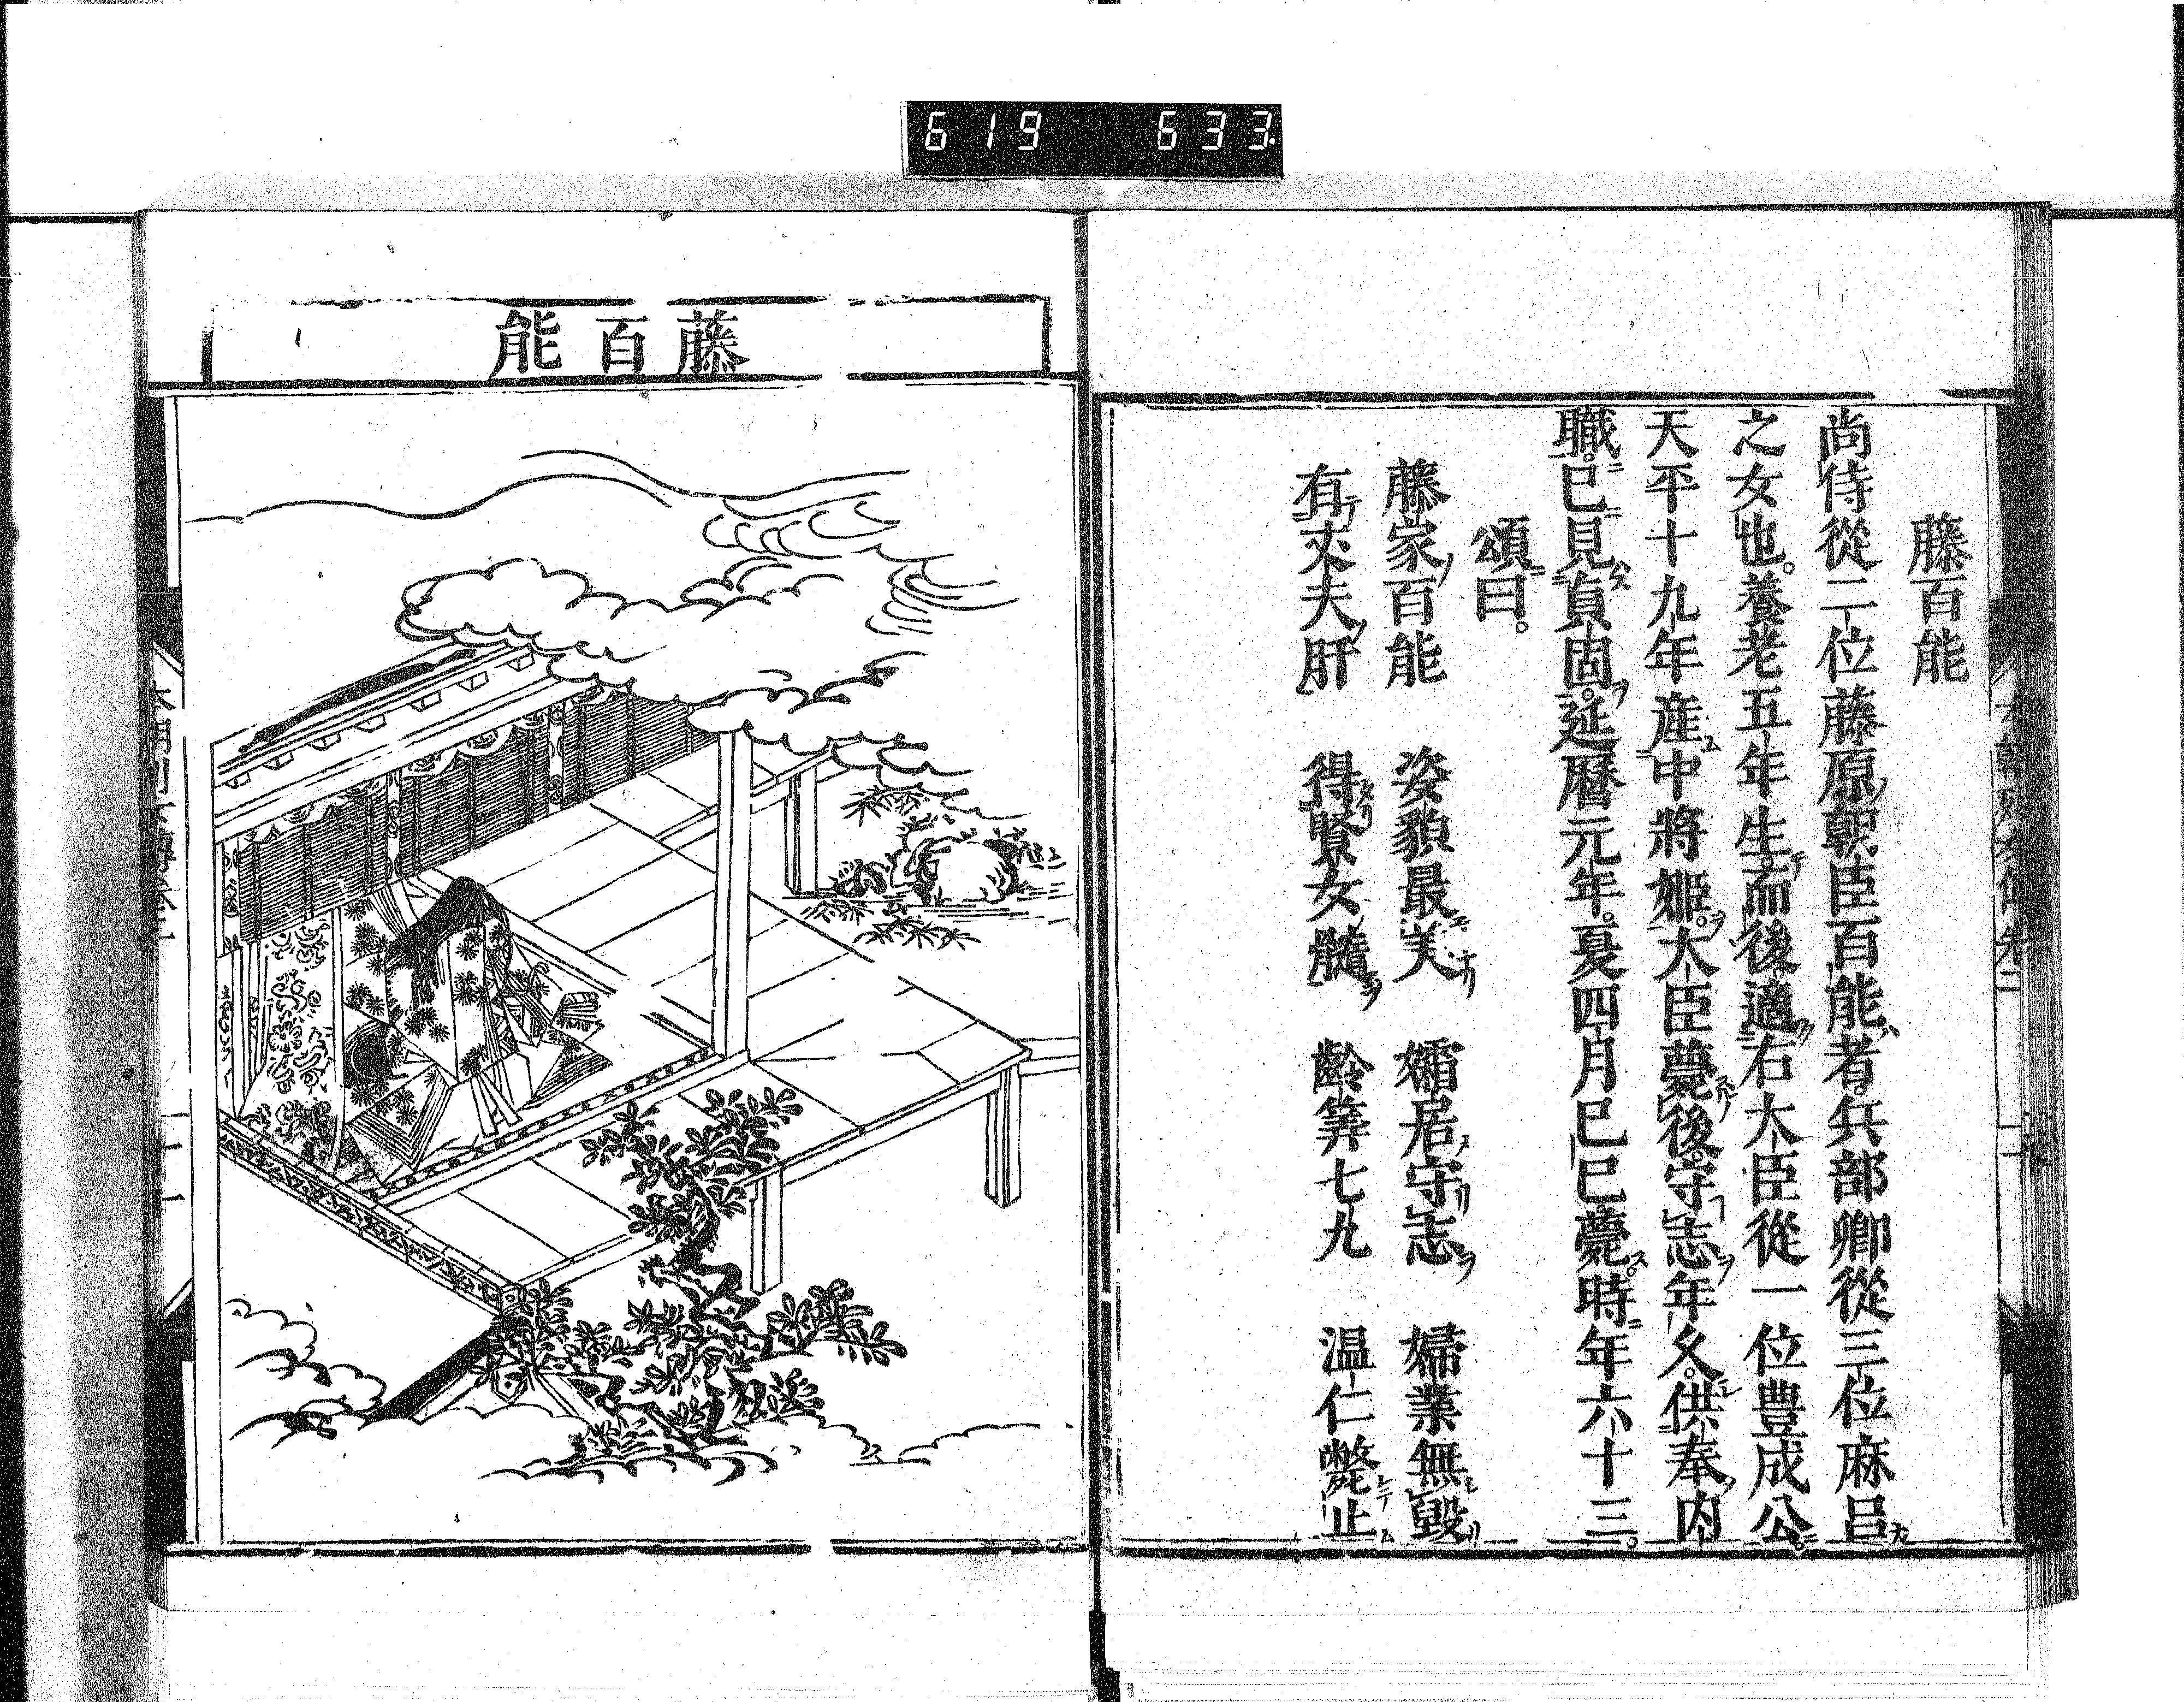 619 633.
藤百能
尚侍從二位藤原朝臣百能者。兵部卿從三位麻呂
之女也。養老五年生。而後適右大臣從一位豊成公。
天平十九年産中將姫。大臣薨後。守志年久。供奉内
職。已見貞固。延暦元年。夏四月已巳薨。時年六十三。
頌曰。
藤家百能 姿貌最美 孀居守志 婦業無毀
有丈夫肝 得賢女髓 齡筭七九 温仁斃止
藤百能